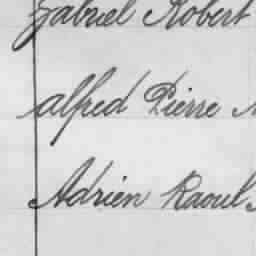 Gabriel Robert
Alfred Pierre
Adrien Raoul